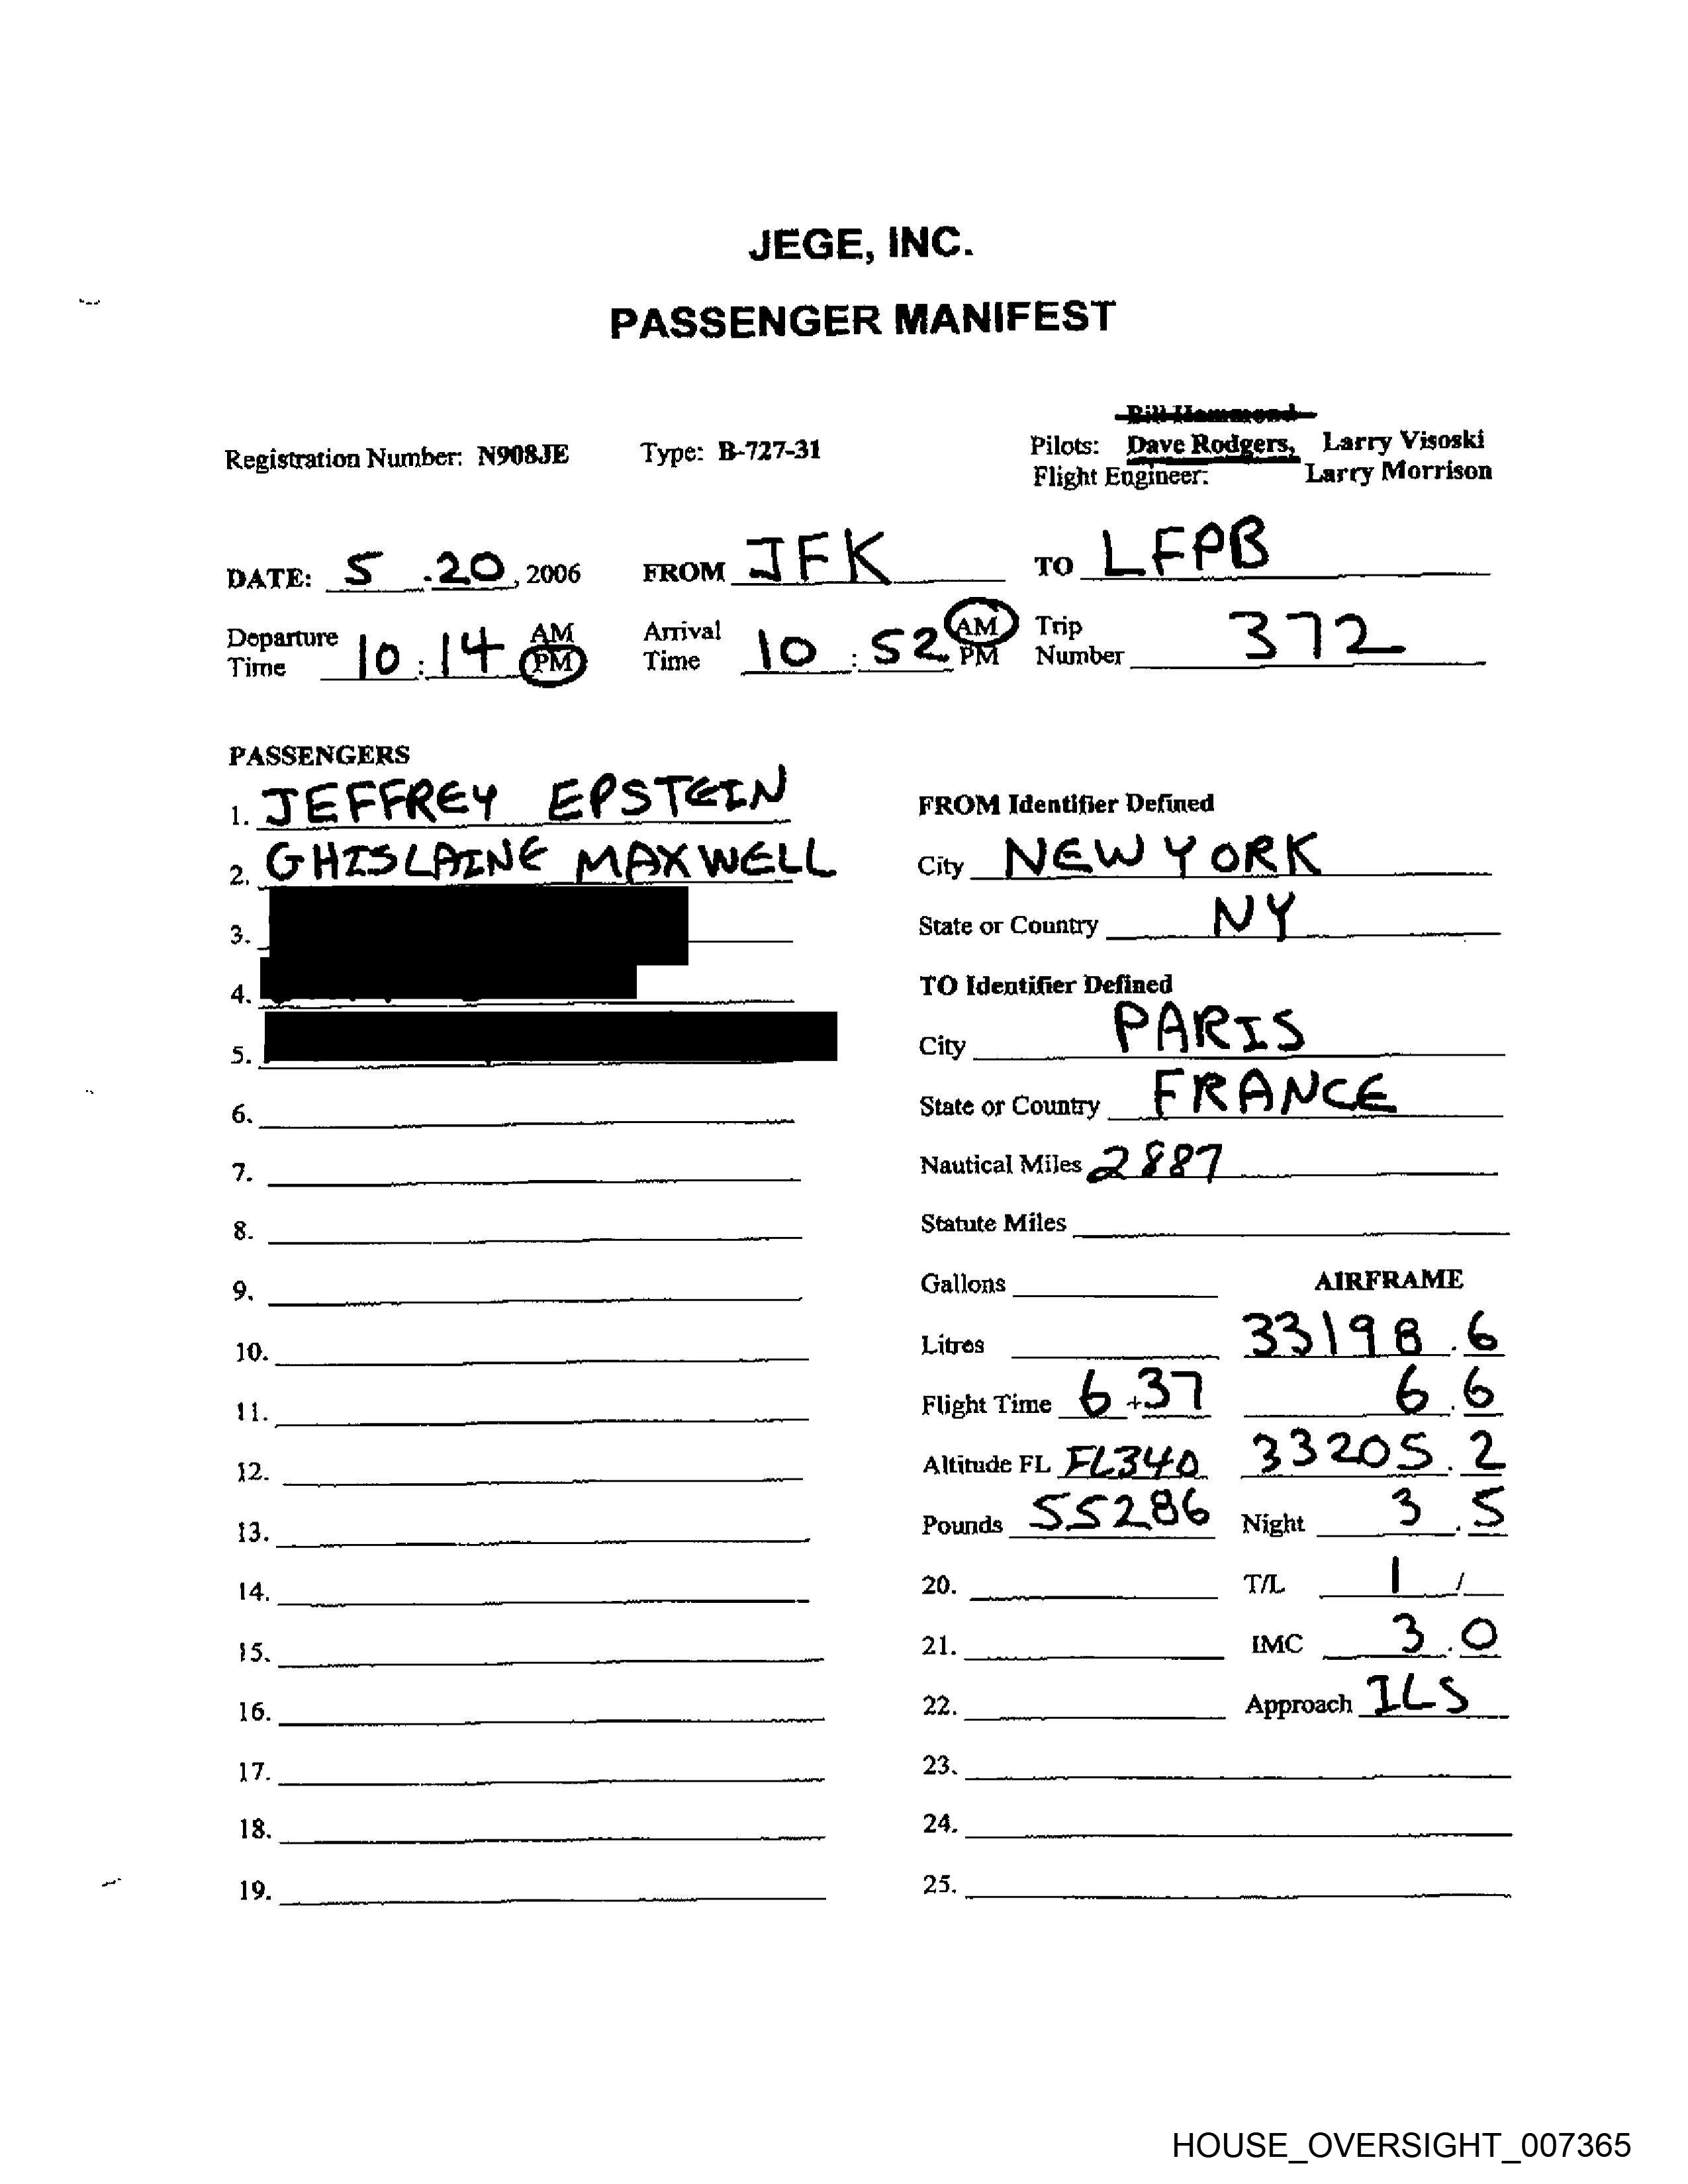 JEGE, INC.
PASSENGER MANIFEST
Bill Hammond
Registration Number: N908JE Type: B-727-31 Pilots: Dave Rodgers, Larry Visoski
Flight Engineer: Larry Morrison
DATE: 5 .20, 2006 FROM JFK TO LFPB
Departure Time 10:14 AM PM Arrival Time 10:52 AM PM Trip Number 372
PASSENGERS
1. JEFFREY EPSTEIN
2. GHISLAINE MAXWELL
3.
4.
5.
6.
7.
8.
9.
10.
11.
12.
13.
14.
15.
16.
17.
18.
19.
FROM Identifier Defined
City NEW YORK
State or Country NY
TO Identifier Defined
City PARIS
State or Country FRANCE
Nautical Miles 2887
Statute Miles
Gallons AIRFRAME
Litres 33198.6
Flight Time 6+37 6.6
Altitude FL FL340 33205.2
Pounds 55286 Night 3.5
20. T/L 1 /
21. IMC 3.0
22. Approach ILS
23.
24.
25.
HOUSE_OVERSIGHT_007365